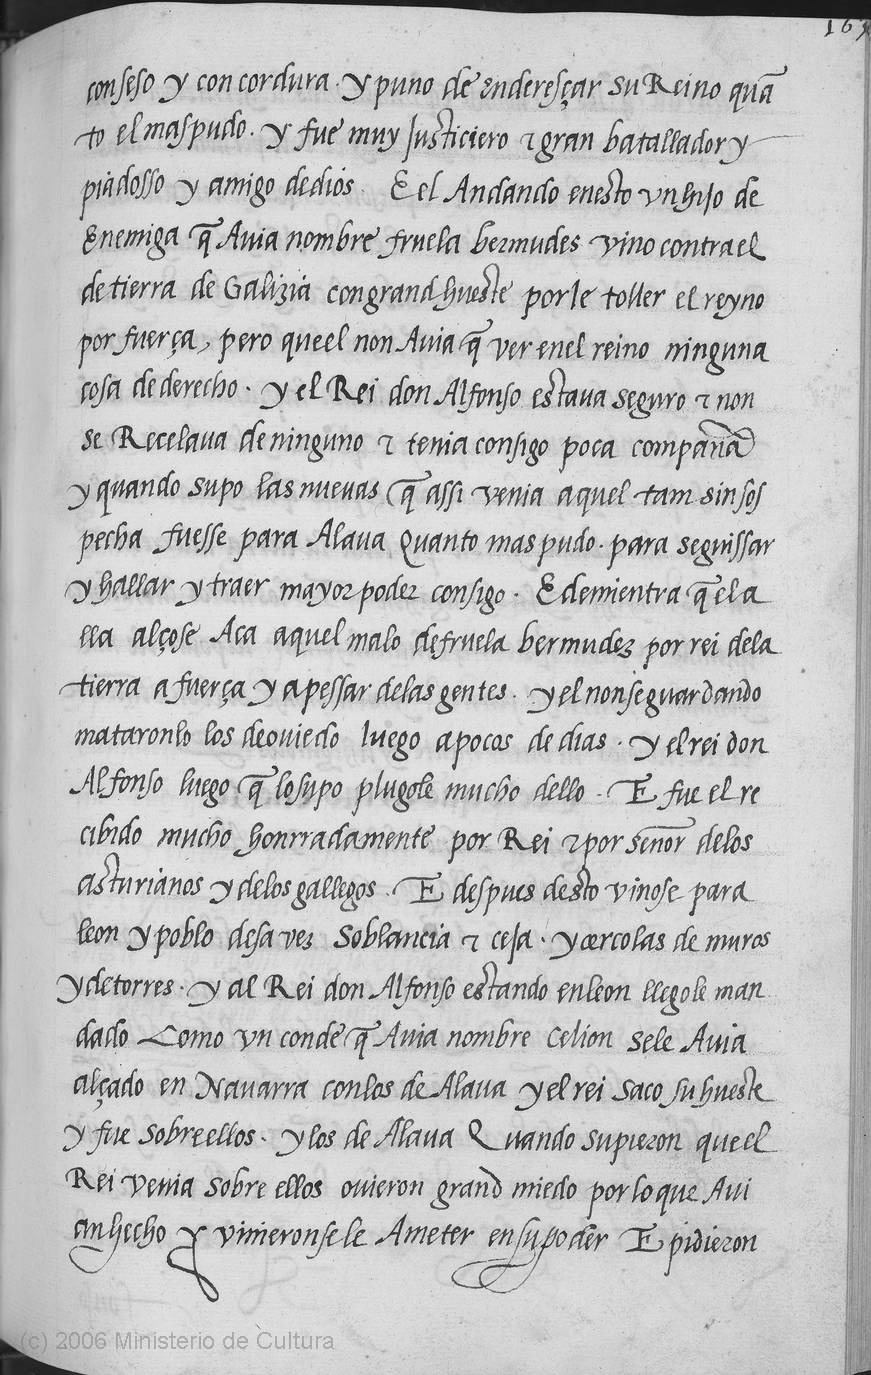 167
conseso y con cordura · y puno de enderesçar su Reino quā
to el mas pudo · y fue muy Justiciero τ gran batallador y
piadosso y amigo de dios · E el Andando enesto vn hiJo de
Enemiga q̃ Auia nombre fruela bermudes vino contra el
de tierra de Galizia con grand hueste por le toller el reyno
por fuerça, pero que el non Auia q̃ ver enel reino ninguna
cosa de derecho · y el Rei don Alfonso estaua seguro τ non
se Recelaua de ninguno τ tenia consigo poca compaña
y quando supo las nueuas q̃ assi venia aquel tam sin sos
pecha fuesse para Alaua Quanto mas pudo · para seguissar
y hallar y traer mayor poder consigo · E demientra q̃ el a
lla alçose Aca aquel malo de fruela bermudez por rei dela
tierra a fuerça y a pessar delas gentes · y el non se guardando
mataronlo los de ouiedo luego a pocos de dias · y el rei don
Alfonso luego q̃ lo supo plugole mucho dello · E fue el re
cibido mucho honrradamente por Rei τ por señor delos
asturianos y delos gallegos · E despues desto vinose para
leon y poblo desa vez Soblancia τ ceJa · y cercolas de muros
y de torres · y al Rei don Alfonso estando en leon llegole man
dado Como vn conde q̃ Auia nombre Celion se le Auia
alçado en Nauarra con los de Alaua y el rei saco su hueste
y fue sobre ellos · y los de Alaua Quando supieron que el
Rei venia sobre ellos ouieron grand miedo por lo que Aui
an hecho y vinieronse le A meter en su poder E pidieron
(c) 2006 Ministerio de Cultura